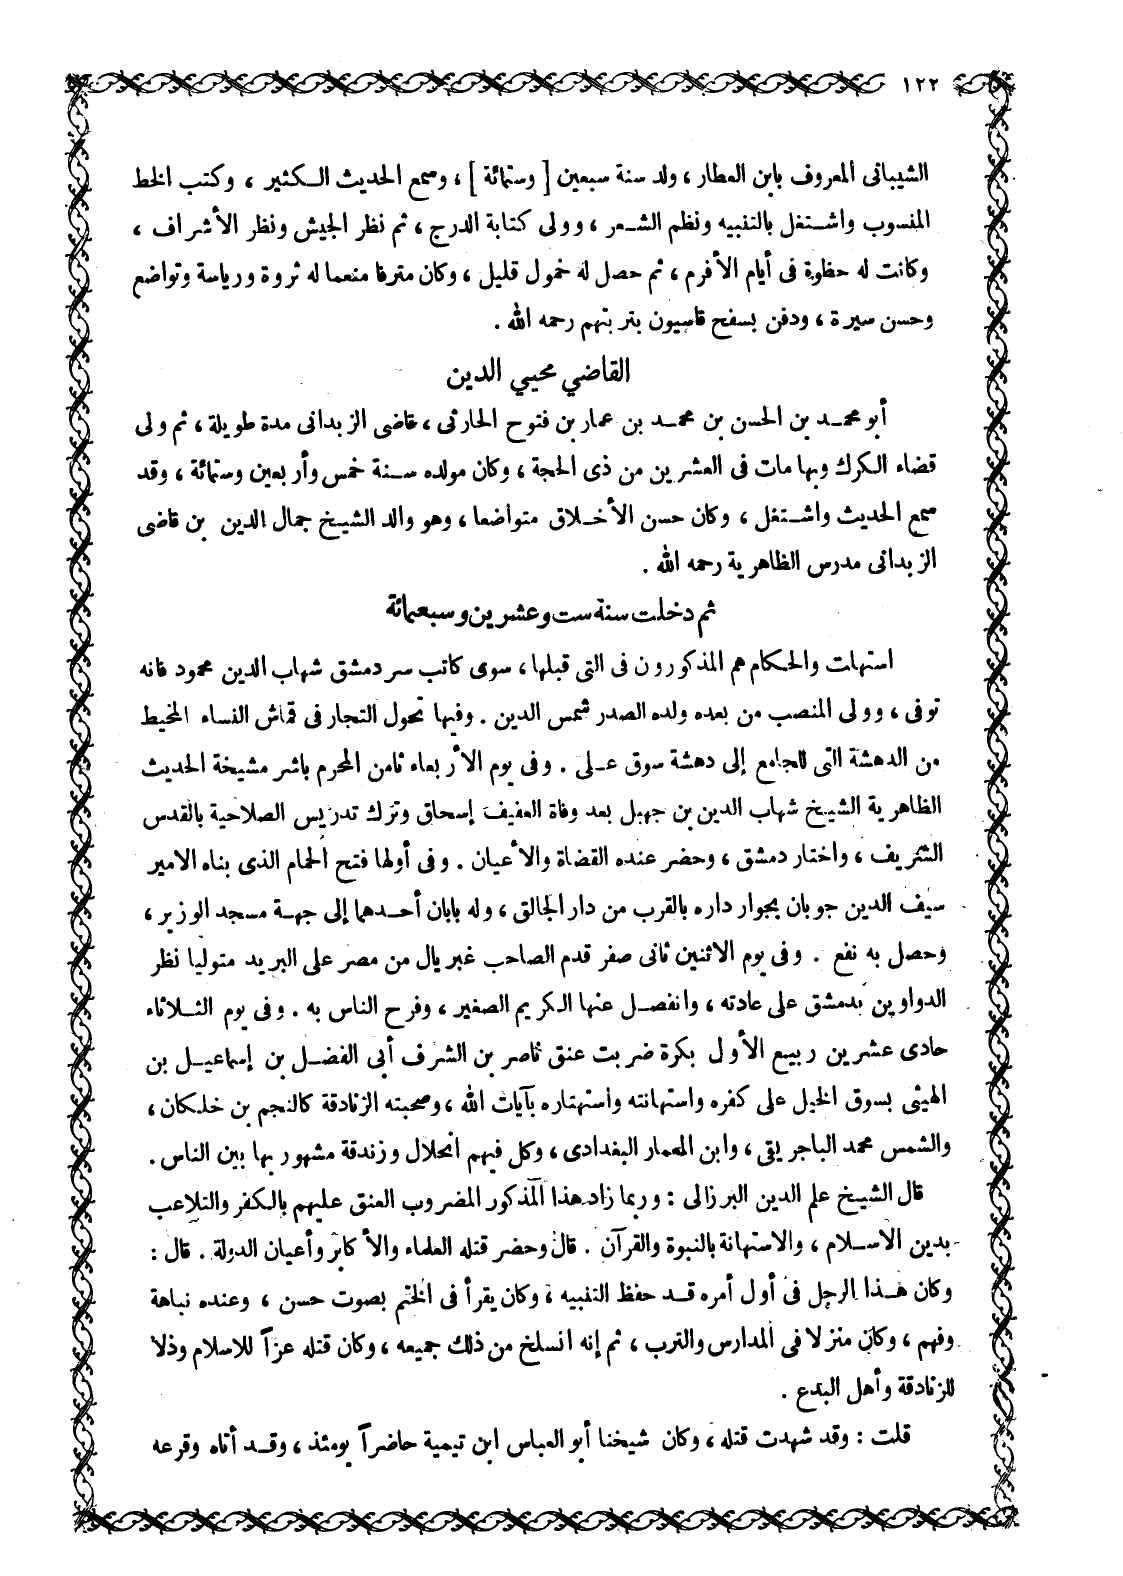 ١٢٢
الشيبانى المعروف بابن العطار ، ولد سنة سبعين [ وستمائة ] ، وسمع الحديث الـكثير ، وكتب الخط
المنسوب واشـتغل بالتنبيه ونظم الشـعر ، وولى كتابة الدرج ، ثم نظر الجيش ونظر الأشراف ،
وكانت له حظوة فى أيام الأفرم ، ثم حصل له خمول قليل ، وكان مترفا منعما له ثروة ورياسة وتواضع
وحسن سيرة ، ودفن بسفح قاسيون بتربتهم رحمه الله .
القاضي محيي الدين
أبو محمـد بن الحسن بن محمـد بن عمار بن فتوح الحارثى ، قاضى الزبدانى مدة طويلة ، ثم ولى
قضاء الـكرك وبها مات فى العشرين من ذى الحجة ، وكان مولده سـنة خمس وأربعين وستمائة ، وقد
سمع الحديث واشـتغل ، وكان حسن الأخـلاق متواضعا ، وهو والد الشيـخ جمال الدين بن قاضى
الزبدانى مدرس الظاهرية رحمه الله .
ثم دخلت سنة ست وعشرين وسبعمائة
استهلت والحـكام هم المذكورون فى التى قبلها ، سوى كاتب سر دمشق شهاب الدين محمود فانه
توفى ، وولى المنصب من بعده ولده الصدر شمس الدين . وفيها تحول التجار فى قماش النساء المخيط
من الدهشة التى للجامع إلى دهشة سوق عـلى . وفى يوم الأربعاء ثامن المحرم باشر مشيخة الحديث
الظاهرية الشيـخ شهاب الدين بن جهبل بعد وفاة العفيف إسحاق وترك تدريس الصلاحية بالقدس
الشريف ، واختار دمشق ، وحضر عنده القضاة والأعيان . وفى أولها فتح الحمام الذى بناه الامير
سيف الدين جوبان بجوار داره بالقرب من دار الجالق ، وله بابان أحـدهما إلى جهـة مسجد الوزير ،
وحصل به نفع . وفى يوم الاثنين ثانى صفر قدم الصاحب غبريال من مصر على البريد متوليا نظر
الدواوين بدمشق على عادته ، وانفصـل عنها الـكريم الصغير ، وفرح الناس به . وفى يوم الثـلاثاء
حادى عشرين ربيع الأول بكرة ضربت عنق ناصر بن الشرف أبى الفضـل بن إسماعيـل بن
الهيثى بسوق الخيل على كفره واستهانته واستهتاره بآيات الله ، وصحبته الزنادقة كالنجم بن خلـكان ،
والشمس محمد الباجريقى ، وابن المعمار البغدادى ، وكل فيهم انحلال وزندقة مشهور بها بين الناس .
قال الشيـخ علم الدين البرزالى : وربما زاد هذا المذكور المضروب العنق عليهم بالـكفر والتلاعب
بدين الاسـلام ، والاستهانة بالنبوة والقرآن . قال وحضر قتله العلماء والأكابر وأعيان الدولة . قال :
وكان هـذا الرجل فى أول أمره قـد حفظ التنبيه ، وكان يقرأ فى الختم بصوت حسن ، وعنده نباهة
وفهم ، وكان منزلا فى المدارس والترب ، ثم إنه انسلخ من ذلك جميعه ، وكان قتله عزاً للاسلام وذلا
للزنادقة وأهل البدع .
قلت : وقد شهدت قتله ، وكان شيخنا أبو العباس ابن تيمية حاضراً يومئذ ، وقـد أتاه وقرعه